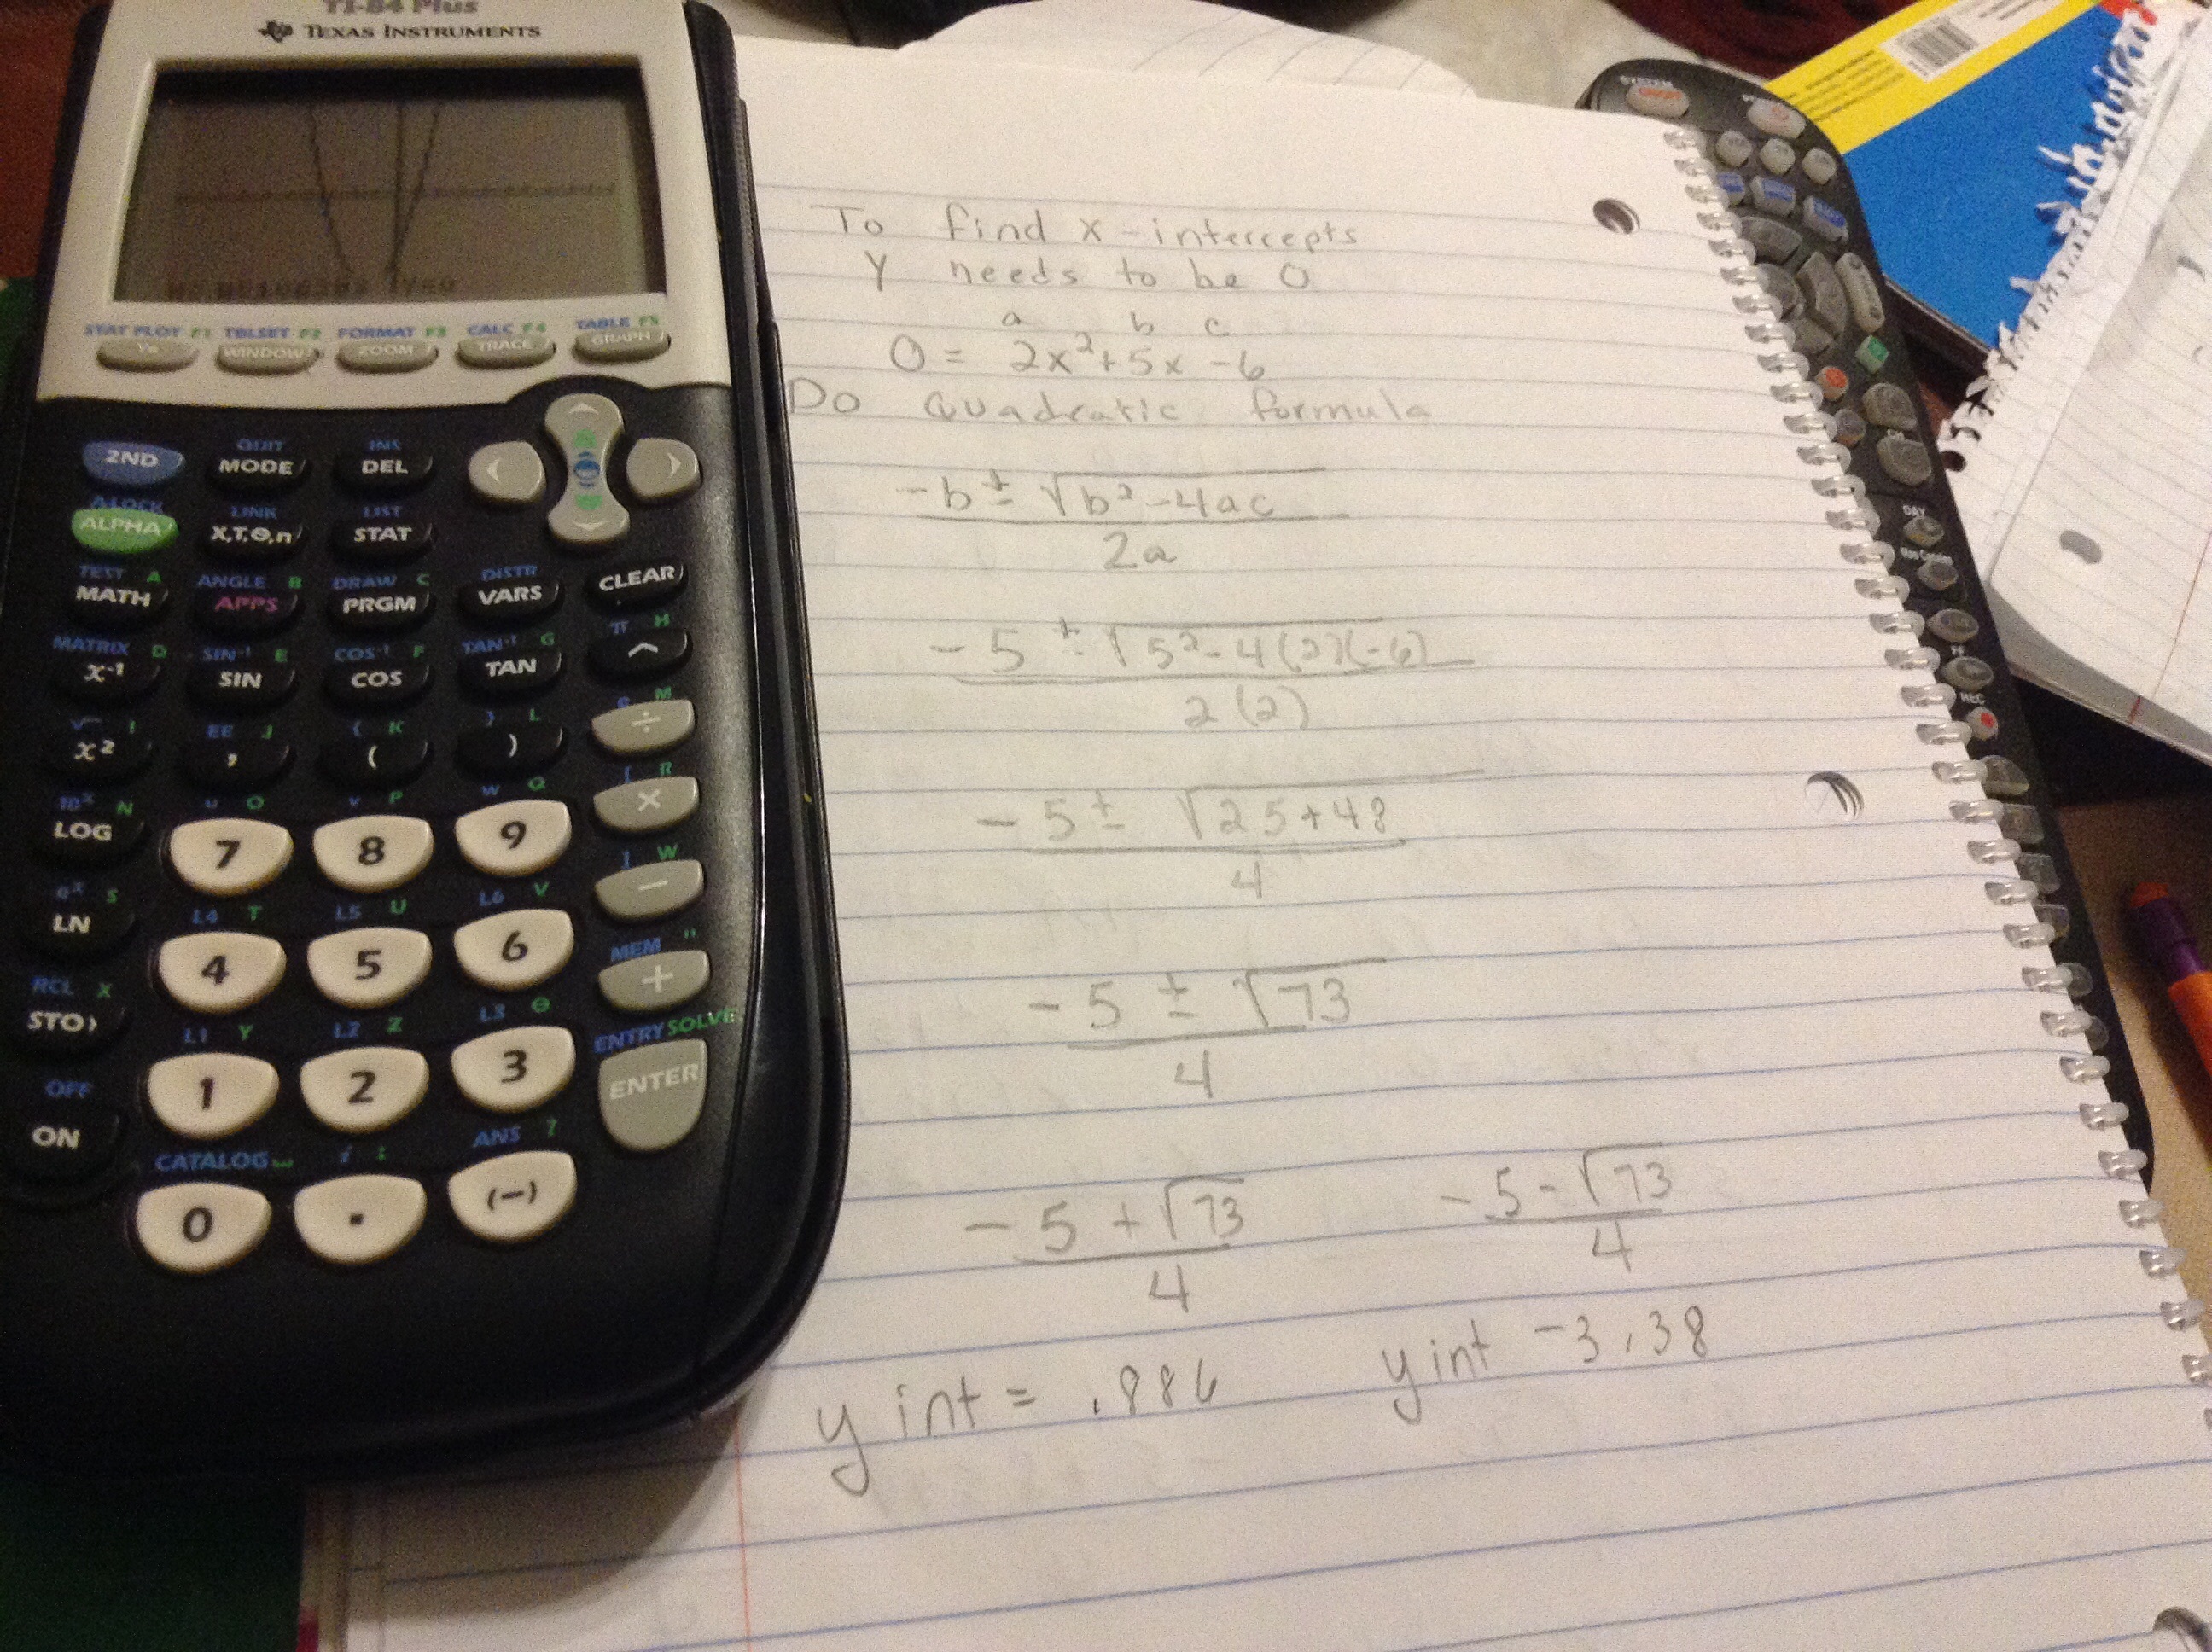 TI-84 Plus
TEXAS INSTRUMENTS
STAT PLOT F1 TBLSET F2 FORMAT F3 CALC F4 TABLE F5
Y= WINDOW ZOOM TRACE GRAPH
QUIT INS
2ND MODE DEL
A-LOCK LINK LIST
ALPHA X,T,Θ,n STAT
TEST A ANGLE B DRAW C DISTR
MATH APPS PRGM VARS CLEAR
MATRIX D SIN⁻¹ E COS⁻¹ F TAN⁻¹ G π H
x⁻¹ SIN COS TAN ^
√ I EE J { K } L e M
x² , ( ) ÷
10ˣ N u O v P w Q [ R
LOG 7 8 9 ×
eˣ S L4 T L5 U L6 V ] W
LN 4 5 6 −
RCL X L1 Y L2 Z L3 θ MEM "
STO› 1 2 3 +
OFF CATALOG i : ANS ? ENTRY SOLVE
ON 0 . (−) ENTER
To find x-intercepts
Y needs to be 0
a b c
0 = 2x²+5x -6
Do Quadratic formula
-b ± √b²-4ac
2a
-5 ± √5²-4(2)(-6)
2(2)
-5 ± √25+48
4
-5 ± √73
4
-5 + √73 -5 - √73
4 4
y int = .886 y int -3.38
SYSTEM
DAY
REC